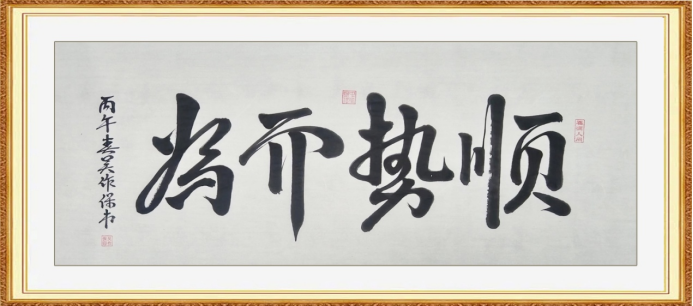 顺势而为
丙午春吴作保书